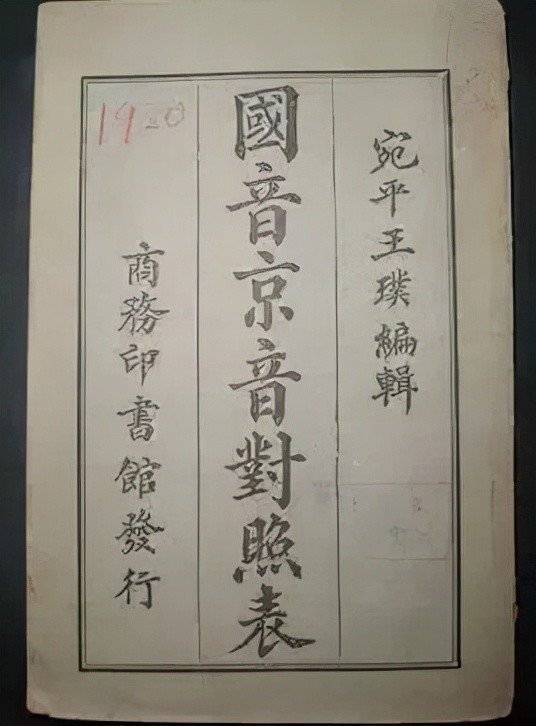 宛平王璞編輯
國音京音對照表
商務印書館發行
1920